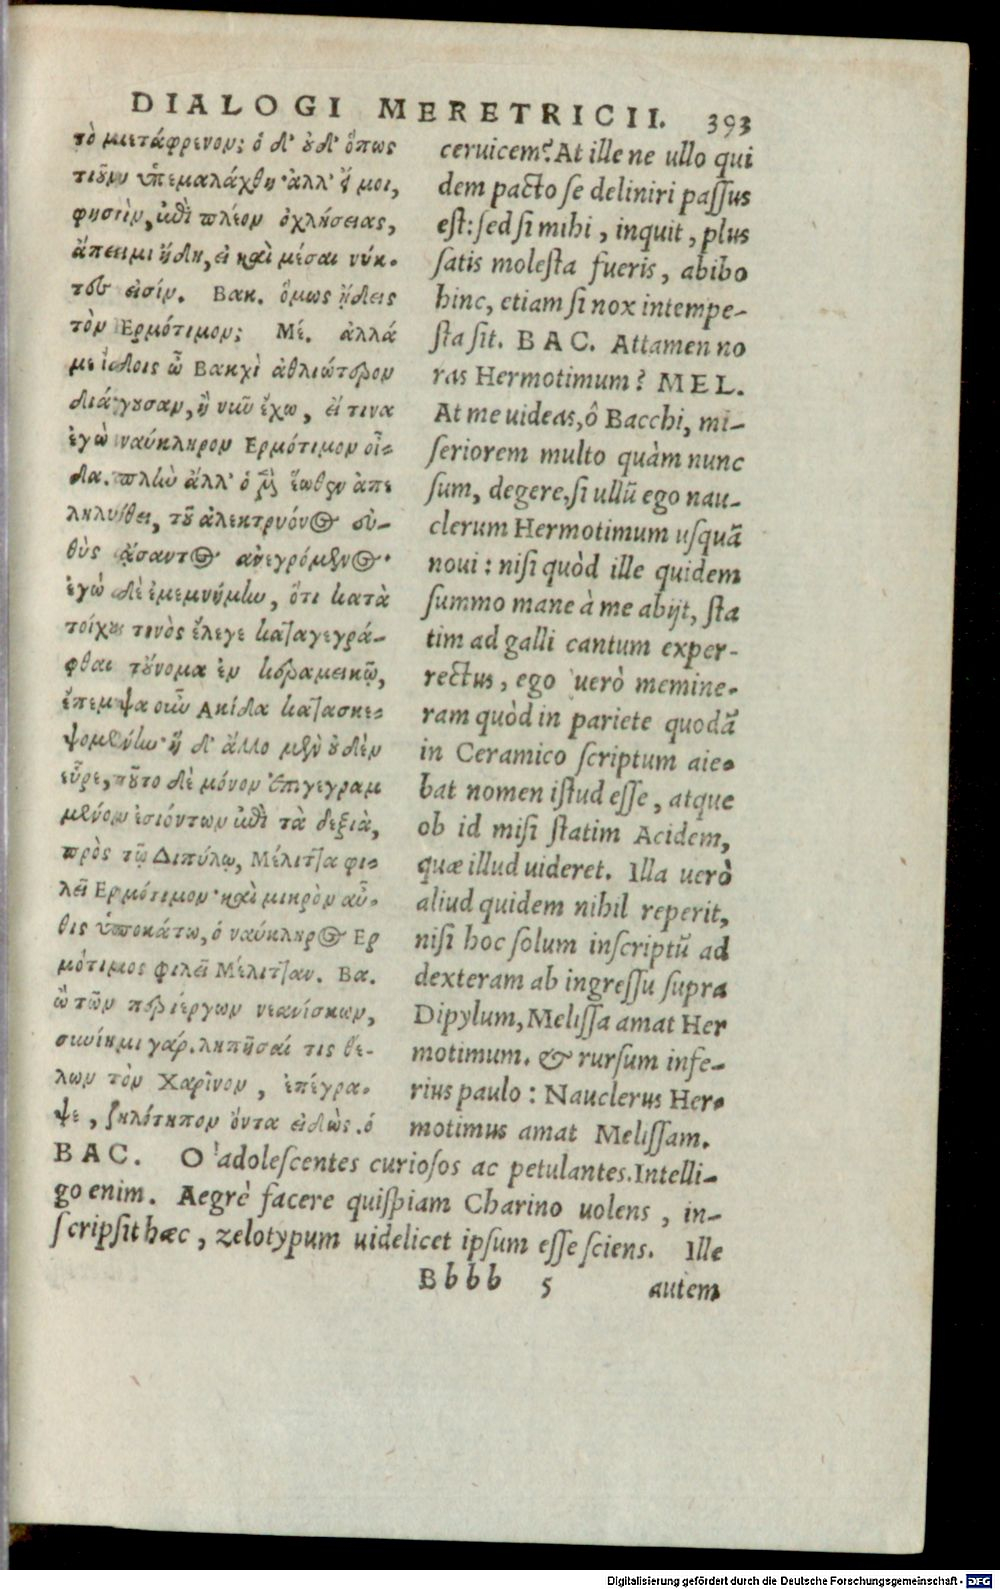 DIALOGI MERETRICII. 393
τὸ μετάφρενον; ὁ δ' οὐδ' ὅπως
τιοῦν ὑπεμαλάχθη· ἀλλ' ἤ μοι,
φησὶν, ἐπὶ πλέον ὀχλήσειας,
ἄπειμι ἤδη, εἰ καὶ μέσαι νύκ-
τες εἰσίν. Βακ. ὅμως ᾔδεις
τὸν Ἑρμότιμον; Μέ. ἀλλά
με ἴδοις ὦ Βακχὶ ἀθλιώτερον
διάγουσαν, ἢ νῦν ἔχω, εἴ τινα
ἐγὼ ναύκληρον Ερμότιμον οἶ-
δα. πλὴν ἀλλ' ὁ μὲν ἕωθεν ἀπε
ληλύθει, τοῦ ἀλεκτρυόνος εὐ-
θὺς ᾄσαντος ἀνεγρόμενος·
ἐγὼ δὲ ἐμεμνήμην, ὅτι κατὰ
τοίχου τινὸς ἔλεγε καταγεγρά-
φθαι τοὔνομα ἐν κεραμεικῷ,
ἔπεμψα οὖν Ακίδα κατασκε-
ψομένην· ἡ δ' ἄλλο μὲν οὐδὲν
εὗρε, τοῦτο δὲ μόνον ἐπιγεγραμ
μένον ἐσιόντων ἐπὶ τὰ δεξιὰ,
πρὸς τῷ Διπύλῳ, Μέλιττα φι-
λεῖ Ερμότιμον· καὶ μικρὸν αὖ-
θις ὑποκάτω, ὁ ναύκληρος Ερ
μότιμος φιλεῖ Μέλιτταν. Βα.
ὢ τῶν περιέργων νεανίσκων,
συνίημι γάρ. λυπῆσαί τις θέ-
λων τὸν Χαρῖνον, ἐπέγρα-
ψε, ζηλότυπον ὄντα εἰδώς. ὁ
ceruicem? At ille ne ullo qui
dem pacto se deliniri passus
est: sed si mihi, inquit, plus
satis molesta fueris, abibo
hinc, etiam si nox intempe-
sta sit. BAC. Attamen no
ras Hermotimum? MEL.
At me uideas, ô Bacchi, mi-
seriorem multo quàm nunc
sum, degere, si ullũ ego nau-
clerum Hermotimum usquã
noui: nisi quòd ille quidem
summo mane à me abijt, sta
tim ad galli cantum exper-
rectus, ego uerò memine-
ram quòd in pariete quodã
in Ceramico scriptum aie-
bat nomen istud esse, atque
ob id misi statim Acidem,
quæ illud uideret. Illa uerò
aliud quidem nihil reperit,
nisi hoc solum inscriptũ ad
dexteram ab ingressu supra
Dipylum, Melissa amat Her
motimum. & rursum infe-
rius paulo: Nauclerus Her-
motimus amat Melissam.
BAC. O adolescentes curiosos ac petulantes. Intelli-
go enim. Aegrè facere quispiam Charino uolens, in-
scripsit hæc, zelotypum uidelicet ipsum esse sciens. Ille
Bbbb 5 autem
Digitalisierung gefördert durch die Deutsche Forschungsgemeinschaft - DFG